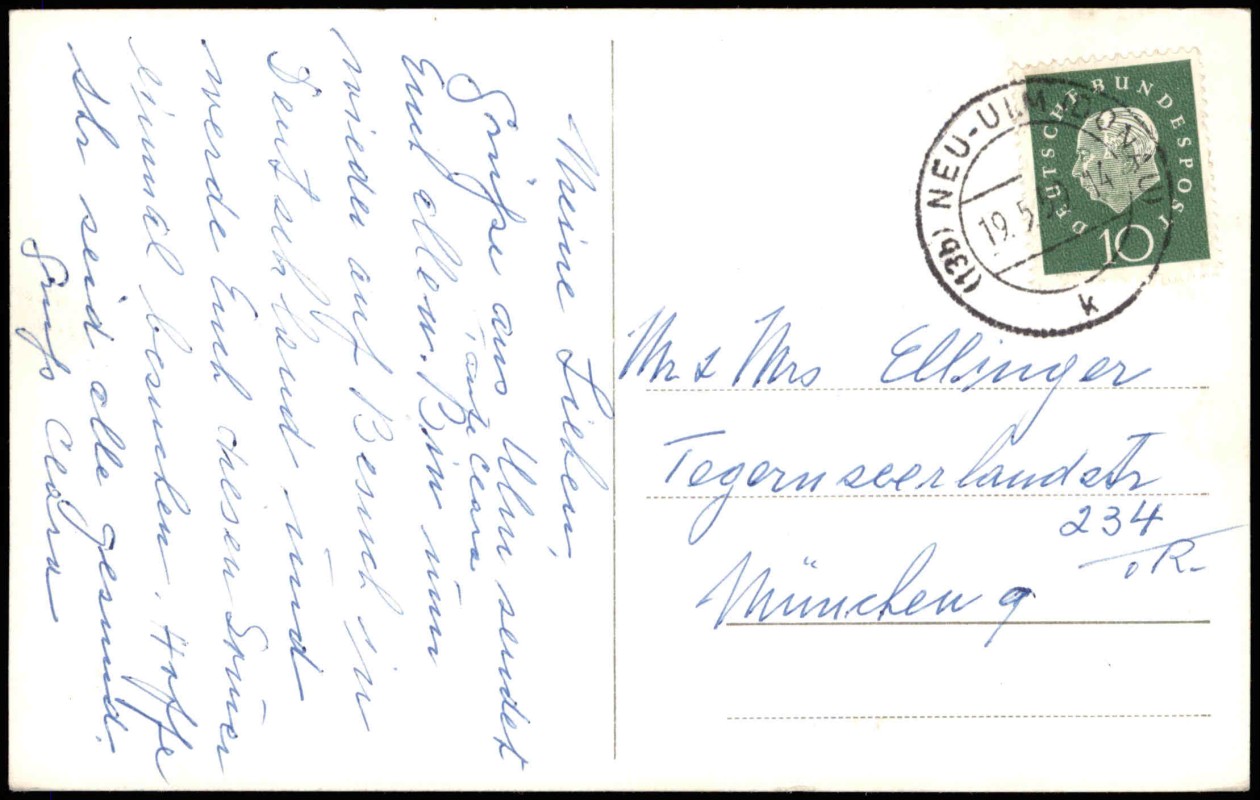 Meine Lieben,
Grüße aus Ulm sendet
Tante Clara
Euch allen. Bin nun
wieder auf Besuch in
Deutschland und
werde Euch diesen
einmal besuchen. Hoffe
Ihr seid alle gesund.
Gruß Clara
DEUTSCHE BUNDESPOST
10
(13b) NEU-ULM (DONAU)
19.5.
14
k
Mr & Mrs Ellinger
Tegernseerlandstr
234
R.
München 9